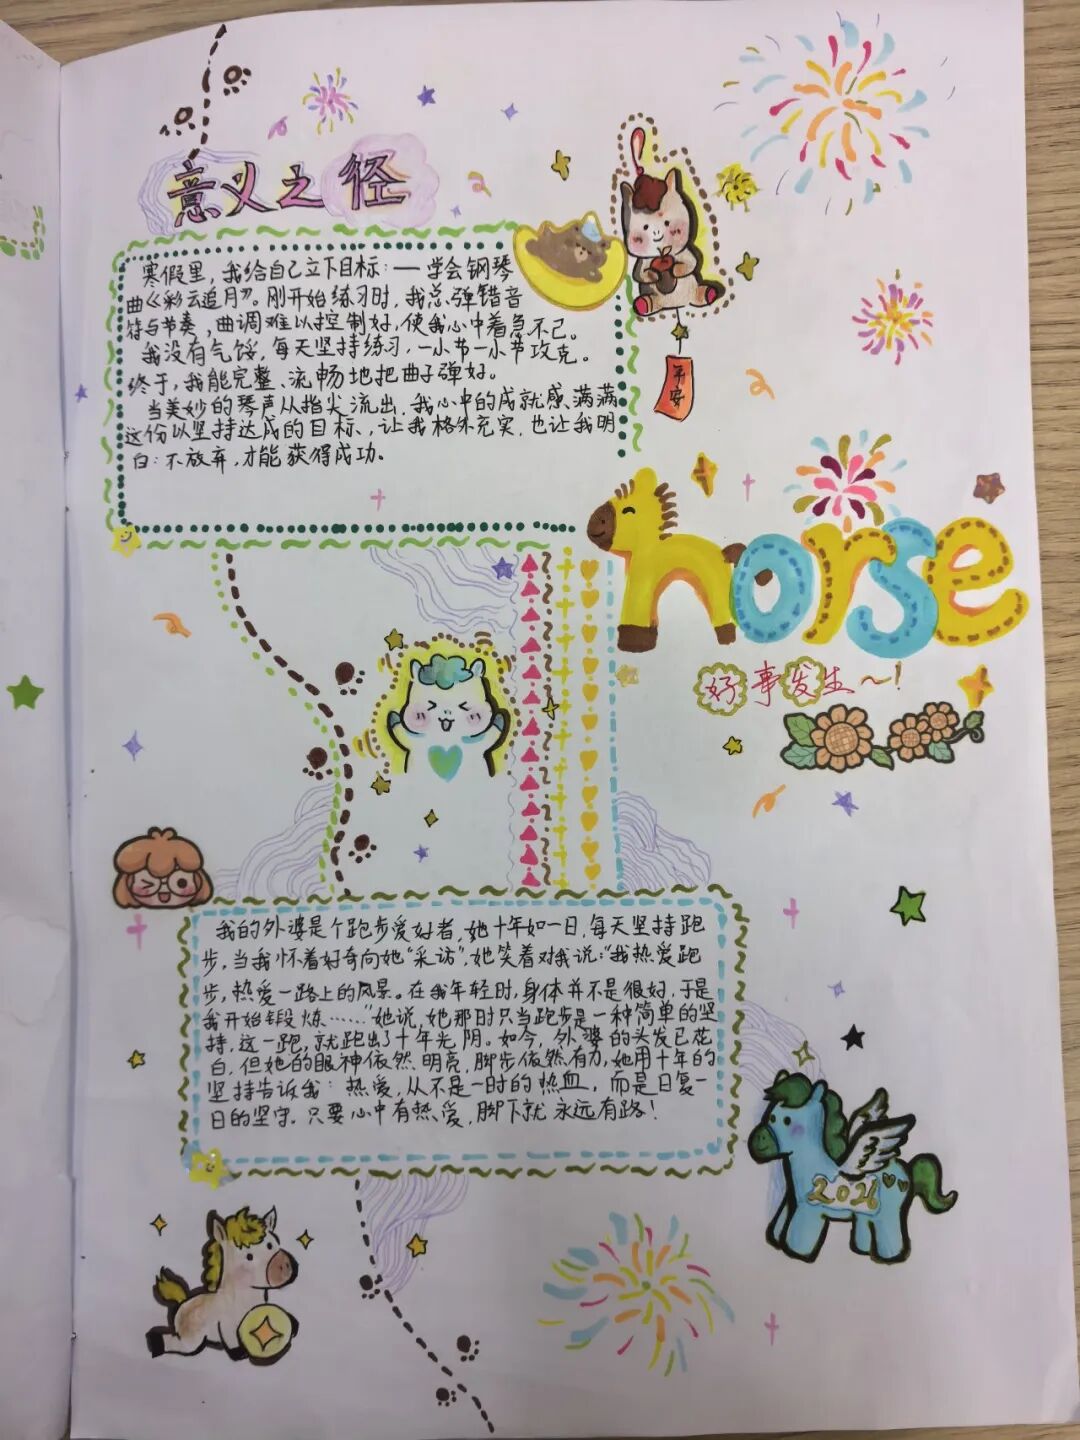 意义之径
寒假里，我给自己立下目标：一学会钢琴
曲《彩云追月》。刚开始练习时，我总弹错音
符与节奏，曲调难以控制好，使我心中着急不已。
我没有气馁，每天坚持练习，一小节一小节攻克。
终于，我能完整、流畅地把曲子弹好。
当美妙的琴声从指尖流出，我心中的成就感满满
这份以坚持达成的目标，让我格外充实，也让我明
白：不放弃，才能获得成功。
平安
horse
好事发生～！
我的外婆是个跑步爱好者，她十年如一日，每天坚持跑
步，当我怀着好奇向她“采访”，她笑着对我说：“我热爱跑
步，热爱一路上的风景。在我年轻时，身体并不是很好，于是
我开始锻炼……”她说，她那时只当跑步是一种简单的坚
持，这一跑，就跑出了十年光阴。如今，外婆的头发已花
白，但她的眼神依然明亮，脚步依然有力，她用十年的
坚持告诉我：热爱，从不是一时的热血，而是日复一
日的坚守。只要心中有热爱，脚下就永远有路！
2026